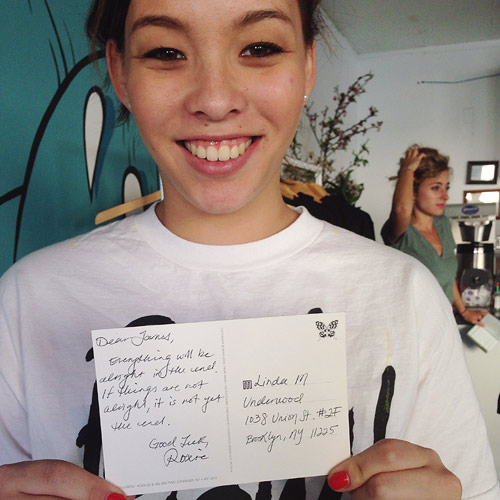 Dear James,
Everything will be
alright in the end.
If things are not
alright, it is not yet
the end.
Good Luck,
Roxie
Linda M
Underwood
1038 Union St. #2F
Brooklyn, NY 11225